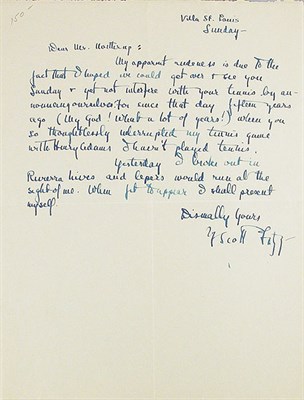 150
Villa St. Louis
Sunday —
Dear Mr. Northrup:
My apparent rudeness is due to the
fact that I hoped we could get over + see you
Sunday + yet not interfere with your tennis by an-
nouncing ourselves. For since that day fifteen years
ago (My God! What a lot of years!) when you
so thoughtlessly interrupted my tennis game
with Henry Adams I haven't played tennis.
Yesterday I broke out in
Riverra hives and lepers would run at the
sight of me. When fit to appear I shall present
myself.
Dismally Yours
F Scott Fitz